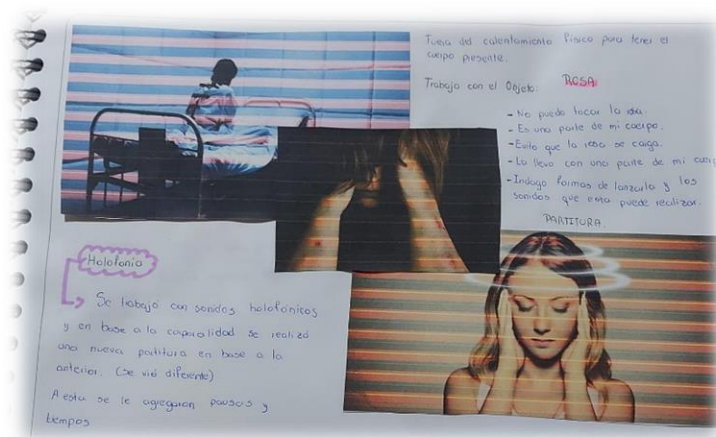 Fuera del calentamiento físico para tener el
cuerpo presente.
Trabajo con el Objeto: ROSA
- No puedo tocar la
- Es una parte de mi cuerpo.
- Evito que la rosa se caiga.
- La llevo con una parte de mi cuerpo
- Indago formas de lanzarla y los
sonidos que esta puede realizar.
PARTITURA.
Holofonía
Se trabajó con sonidos holofónicos
y en base a la corporalidad se realizó
una nueva partitura en base a la
anterior. (se vió diferente)
A esta se le agregaron pausas y
tiempos